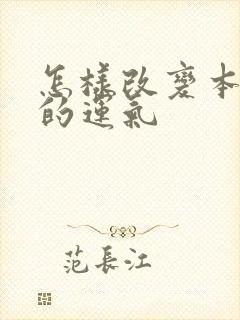 怎樣改變本
的運氣
范長江